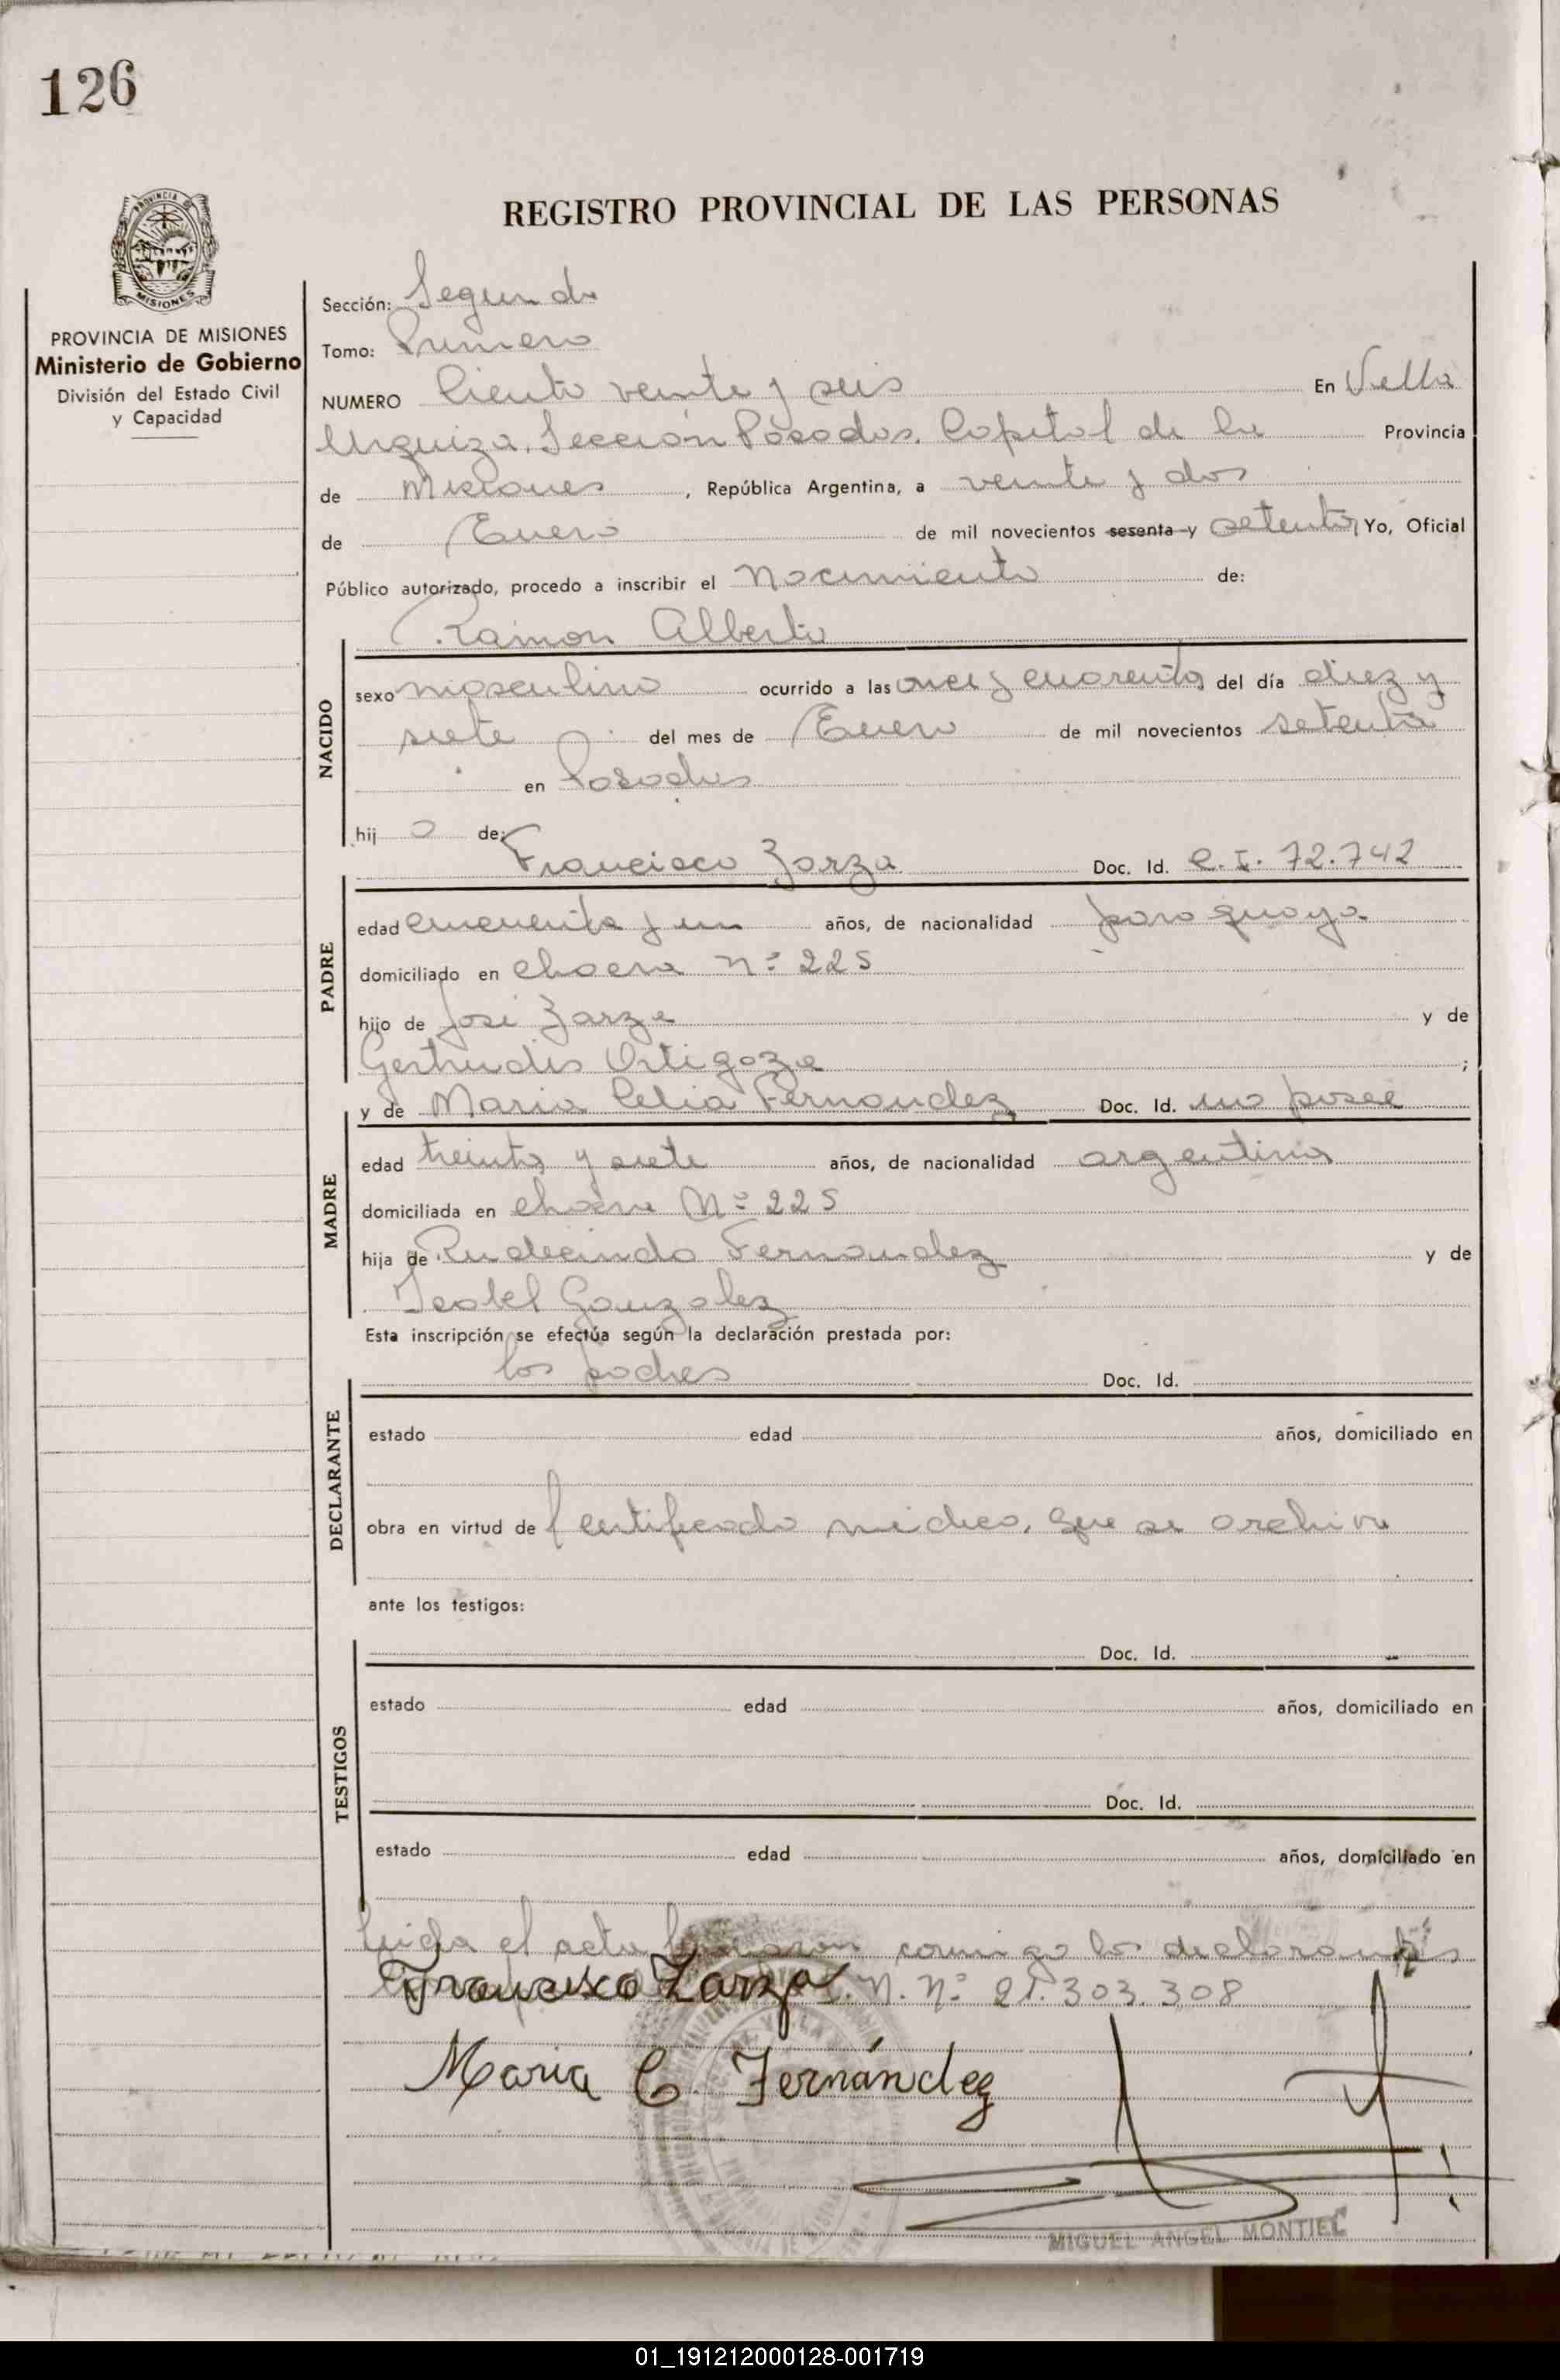 126
REGISTRO PROVINCIAL DE LAS PERSONAS
PROVINCIA DE MISIONES
MISIONES
PROVINCIA DE MISIONES
Ministerio de Gobierno
División del Estado Civil
y Capacidad
Sección: Segunda
Tomo: Primero
NUMERO Ciento veinte y seis En Villa
Urquiza, Sección Posadas, Capital de la Provincia
de Misiones, República Argentina, a veinte y dos
de Enero de mil novecientos sesenta y setenta, Yo, Oficial
Público autorizado, procedo a inscribir el Nacimiento de:
Ramon Alberto
NACIDO
sexo masculino ocurrido a las once y cuarenta del día diez y
siete del mes de Enero de mil novecientos setenta
en Posadas
hij o de:
Francisco Zarza Doc. Id. C.I. 72.742
PADRE
edad cincuenta y un años, de nacionalidad paraguaya
domiciliado en chacra Nº 225
hijo de José Zarza y de
Gertrudis Ortigoza ;
y de Maria Celia Fernandez Doc. Id. no posee
MADRE
edad treinta y siete años, de nacionalidad argentina
domiciliada en chacra Nº 225
hija de Rudecindo Fernandez y de
Isabel Gonzalez
Esta inscripción se efectúa según la declaración prestada por:
los padres Doc. Id.
DECLARANTE
estado edad años, domiciliado en
obra en virtud de certificado médico, que se archiva
ante los testigos:
Doc. Id.
TESTIGOS
estado edad años, domiciliado en
Doc. Id.
estado edad años, domiciliado en
Leida el acta firmaron conmigo los declarantes
Francisco Zarza N. Nº 21.303.308
Maria C. Fernández
MIGUEL ANGEL MONTIEL
01_191212000128-001719